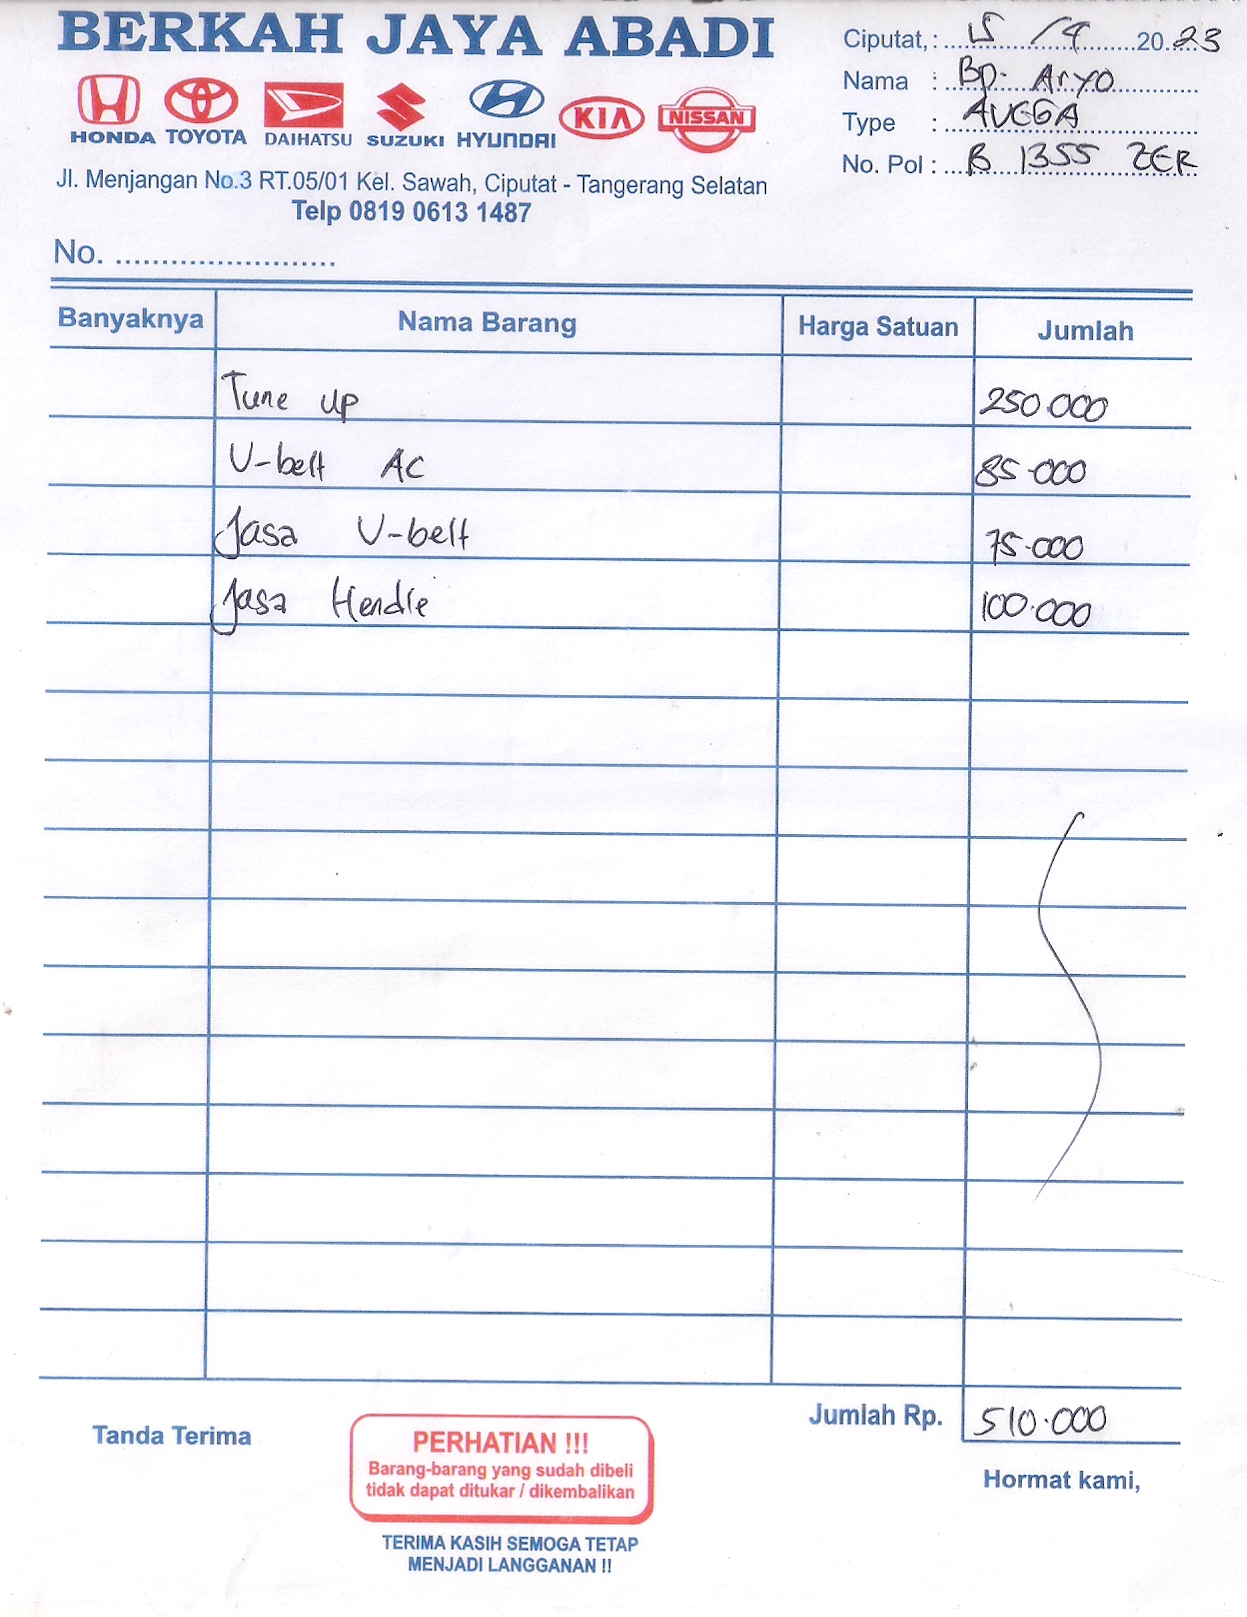 BERKAH JAYA ABADI
HONDA TOYOTA DAIHATSU SUZUKI HYUNDAI KIA NISSAN
Jl. Menjangan No.3 RT.05/01 Kel. Sawah, Ciputat - Tangerang Selatan
Telp 0819 0613 1487
Ciputat, : 15 / 4 20.23
Nama : Bp. Aryo
Type :
No. Pol : B 1355 ZER
No. ........................
Banyaknya Nama Barang Harga Satuan Jumlah
Tune up 250.000
V-belt AC 85.000
Jasa V-belt 75.000
Jasa Hendle 100.000
Jumlah Rp. 510.000
Tanda Terima
PERHATIAN !!!
Barang-barang yang sudah dibeli
tidak dapat ditukar / dikembalikan
Hormat kami,
TERIMA KASIH SEMOGA TETAP
MENJADI LANGGANAN !!